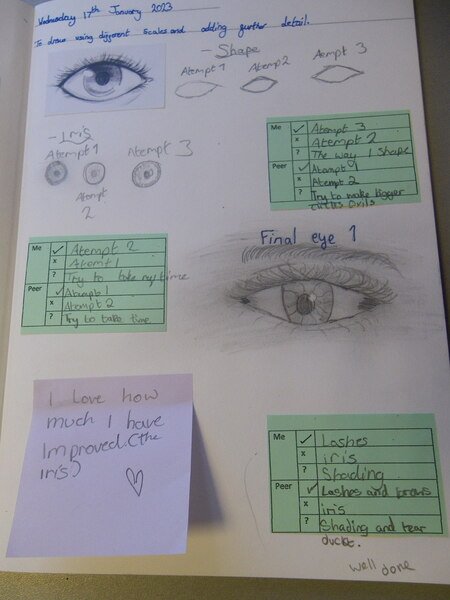 Wednesday 17th January 2023
To draw using different Scales and adding further detail.
- Shape
Atempt 1
Atempt 2
Aempt 3
- Iris
Atempt 1
Atempt
2
Atempt 3
Me ✓ Atempt 3
x Atempt 2
? The way I Shape
Peer ✓ Atampt 1
x Atempt 2
? Try to make bigger
Me ✓ Atempt 2
x Atempt 1
? Try to take my time
Peer ✓ Atampt 1
x Atempt 2
? Try to take time
Final eye 1
I Love how
much I have
Improved.(the
iris)
Me ✓ Lashes
x iris
? Shading
Peer ✓ Lashes and brows
x iris
? Shading and tear
duckt.
well done